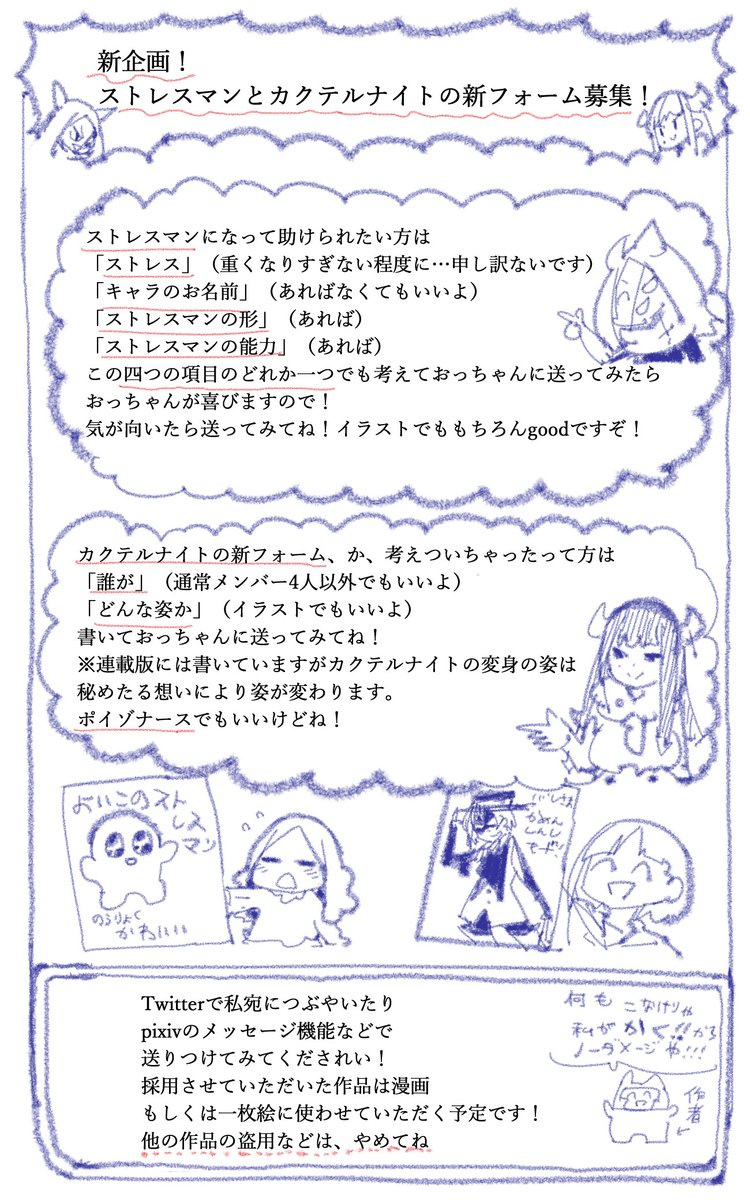 新企画！
ストレスマンとカクテルナイトの新フォーム募集！
ストレスマンになって助けられたい方は
「ストレス」（重くなりすぎない程度に…申し訳ないです）
「キャラのお名前」（あればなくてもいいよ）
「ストレスマンの形」（あれば）
「ストレスマンの能力」（あれば）
この四つの項目のどれか一つでも考えておっちゃんに送ってみたら
おっちゃんが喜びますので！
気が向いたら送ってみてね！イラストでももちろんgoodですぞ！
カクテルナイトの新フォーム、か、考えついちゃったって方は
「誰が」（通常メンバー4人以外でもいいよ）
「どんな姿か」（イラストでもいいよ）
書いておっちゃんに送ってみてね！
※連載版には書いていますがカクテルナイトの変身の姿は
秘めたる想いにより姿が変わります。
ポイゾナースでもいいけどね！
よいこのスト
レス
マン
のうりょく
かわいい
かめん
しんし
モード!
Twitterで私宛につぶやいたり
pixivのメッセージ機能などで
送りつけてみてくだされい！
採用させていただいた作品は漫画
もしくは一枚絵に使わせていただく予定です！
他の作品の盗用などは、やめてね
何も こなけりゃ
私が かく!!から
ノーダメージや!!!
作者